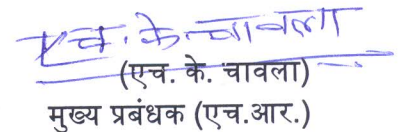 एच. के. चावला
(एच. के. चावला)
मुख्य प्रबंधक (एच.आर.)